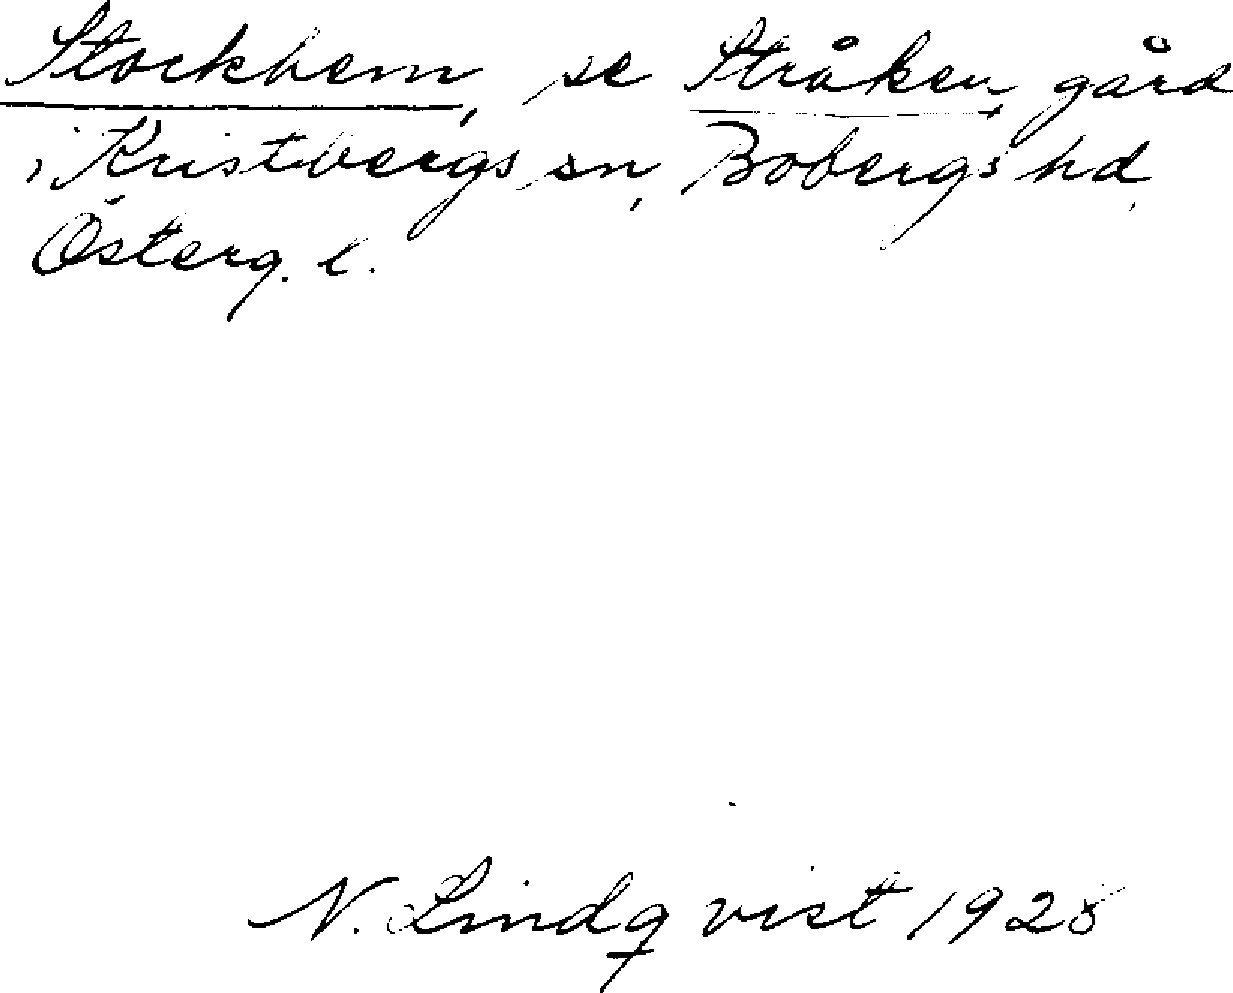 Stockhem, se Stråken, gård
i Kristbergs sn, Bobergs hd,
Österg. l.
N. Lindqvist 1928